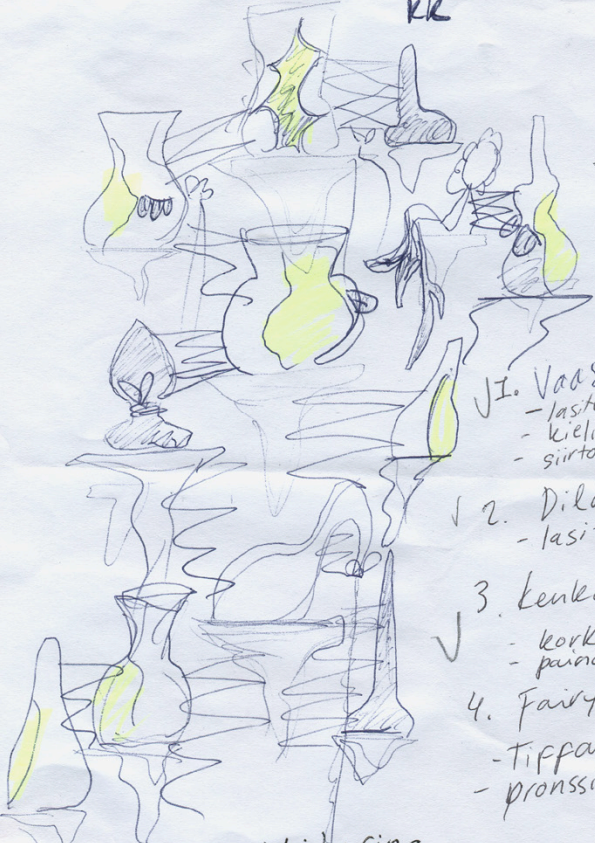 RR
1. Vaas
- lasit
- kieli
- siirto
2. Dild
- lasi
3. kenk
- kork
- pain
4. Fairy
- Tiffa
- pronssi